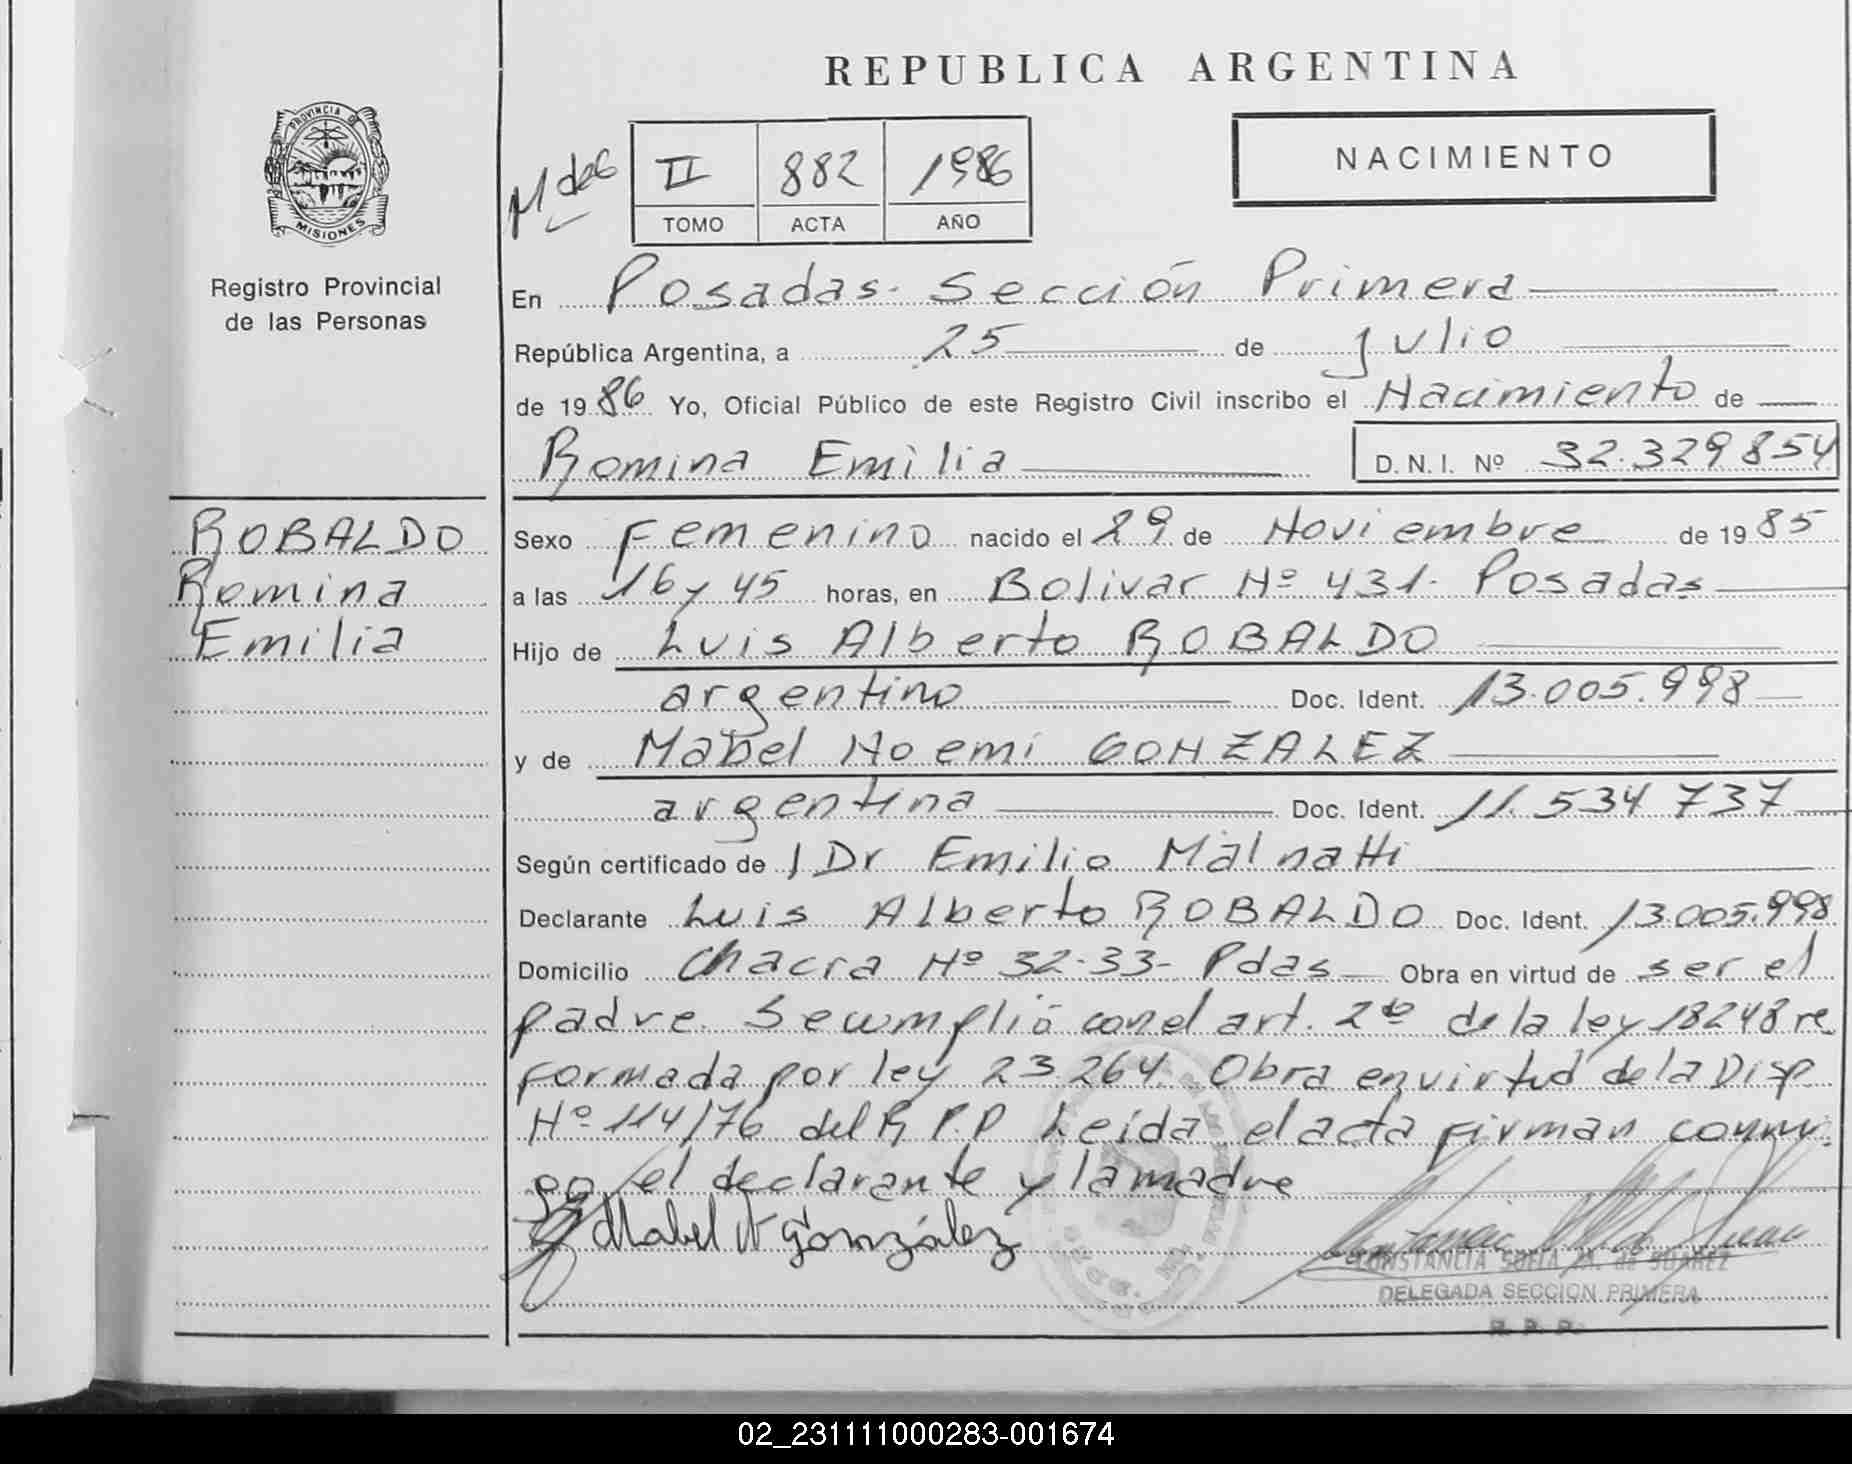 REPUBLICA ARGENTINA
PROVINCIA DE
MISIONES
Registro Provincial
de las Personas
II 882 1986
TOMO ACTA AÑO
NACIMIENTO
En Posadas. Sección Primera
República Argentina, a 25 de julio
de 1986 Yo, Oficial Público de este Registro Civil inscribo el Nacimiento de
Romina Emilia D.N.I. Nº 32.329.854
ROBALDO
Romina
Emilia
Sexo Femenino nacido el 29 de Noviembre de 1985
a las 16 y 45 horas, en Bolivar Nº 431. Posadas
Hijo de Luis Alberto ROBALDO
argentino Doc. Ident. 13.005.998
y de Mabel Noemi GONZALEZ
argentina Doc. Ident. 11.534.737
Según certificado de Dr Emilio Malnatti
Declarante Luis Alberto ROBALDO Doc. Ident. 13.005.998
Domicilio Chacra Nº 32-33- Pdas Obra en virtud de ser el
padre. Se cumplió con el art. 2º de la ley 18248 re
formada por ley 23.264. Obra en virtud de la Disp
Nº 114/76 del R.P.P Leída el acta firman conmi
go el declarante y la madre
Mabel N González
CONSTANCIA SOFIA M. de SUAREZ
DELEGADA SECCION PRIMERA
R. P. P.
02_231111000283-001674